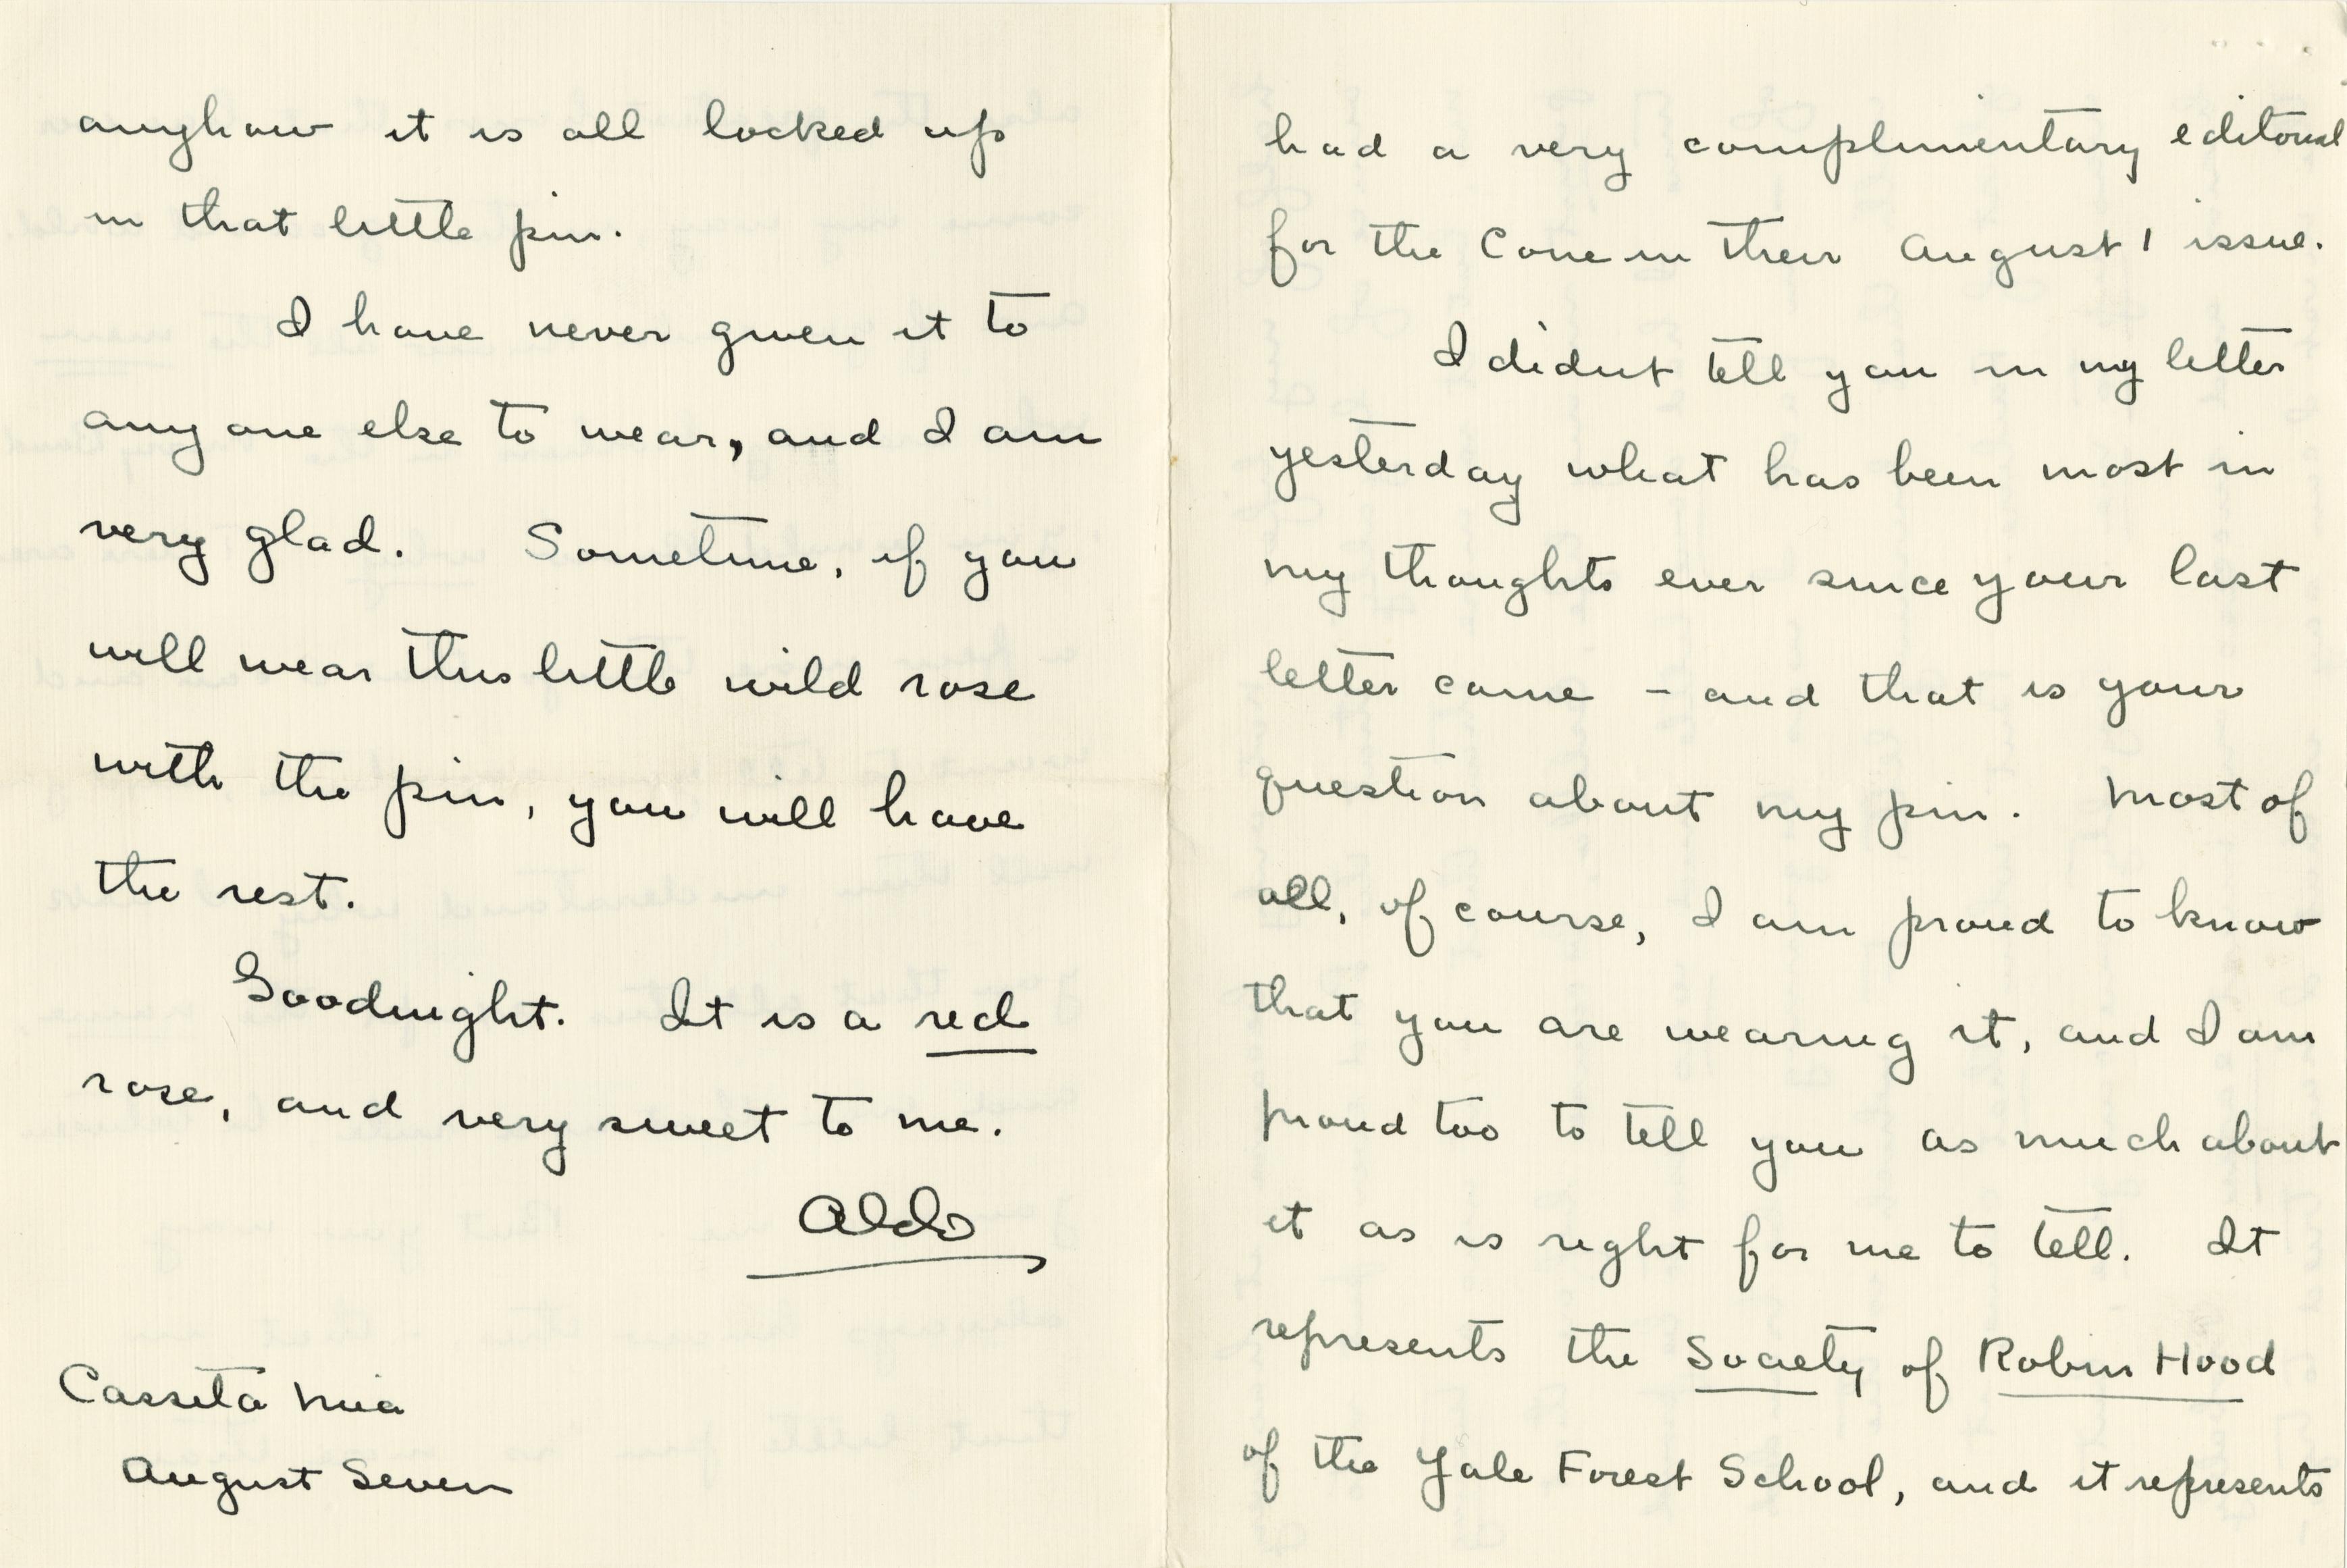 anyhow it is all locked up
in that little pin.
I have never given it to
anyone else to wear, and I am
very glad. Sometime, if you
will wear this little wild rose
with the pin, you will have
the rest.
Goodnight. It is a red
rose, and very sweet to me.
Aldo
Cassita Mia
August Seven
had a very complimentary editorial
for the Cone in their August 1 issue.
I didnt tell you in my letter
yesterday what has been most in
my thoughts ever since your last
letter came – and that is your
question about my pin. Most of
all, of course, I am proud to know
that you are wearing it, and I am
proud too to tell you as much about
it as is right for me to tell. It
represents the Society of Robin Hood
of the Yale Forest School, and it represents